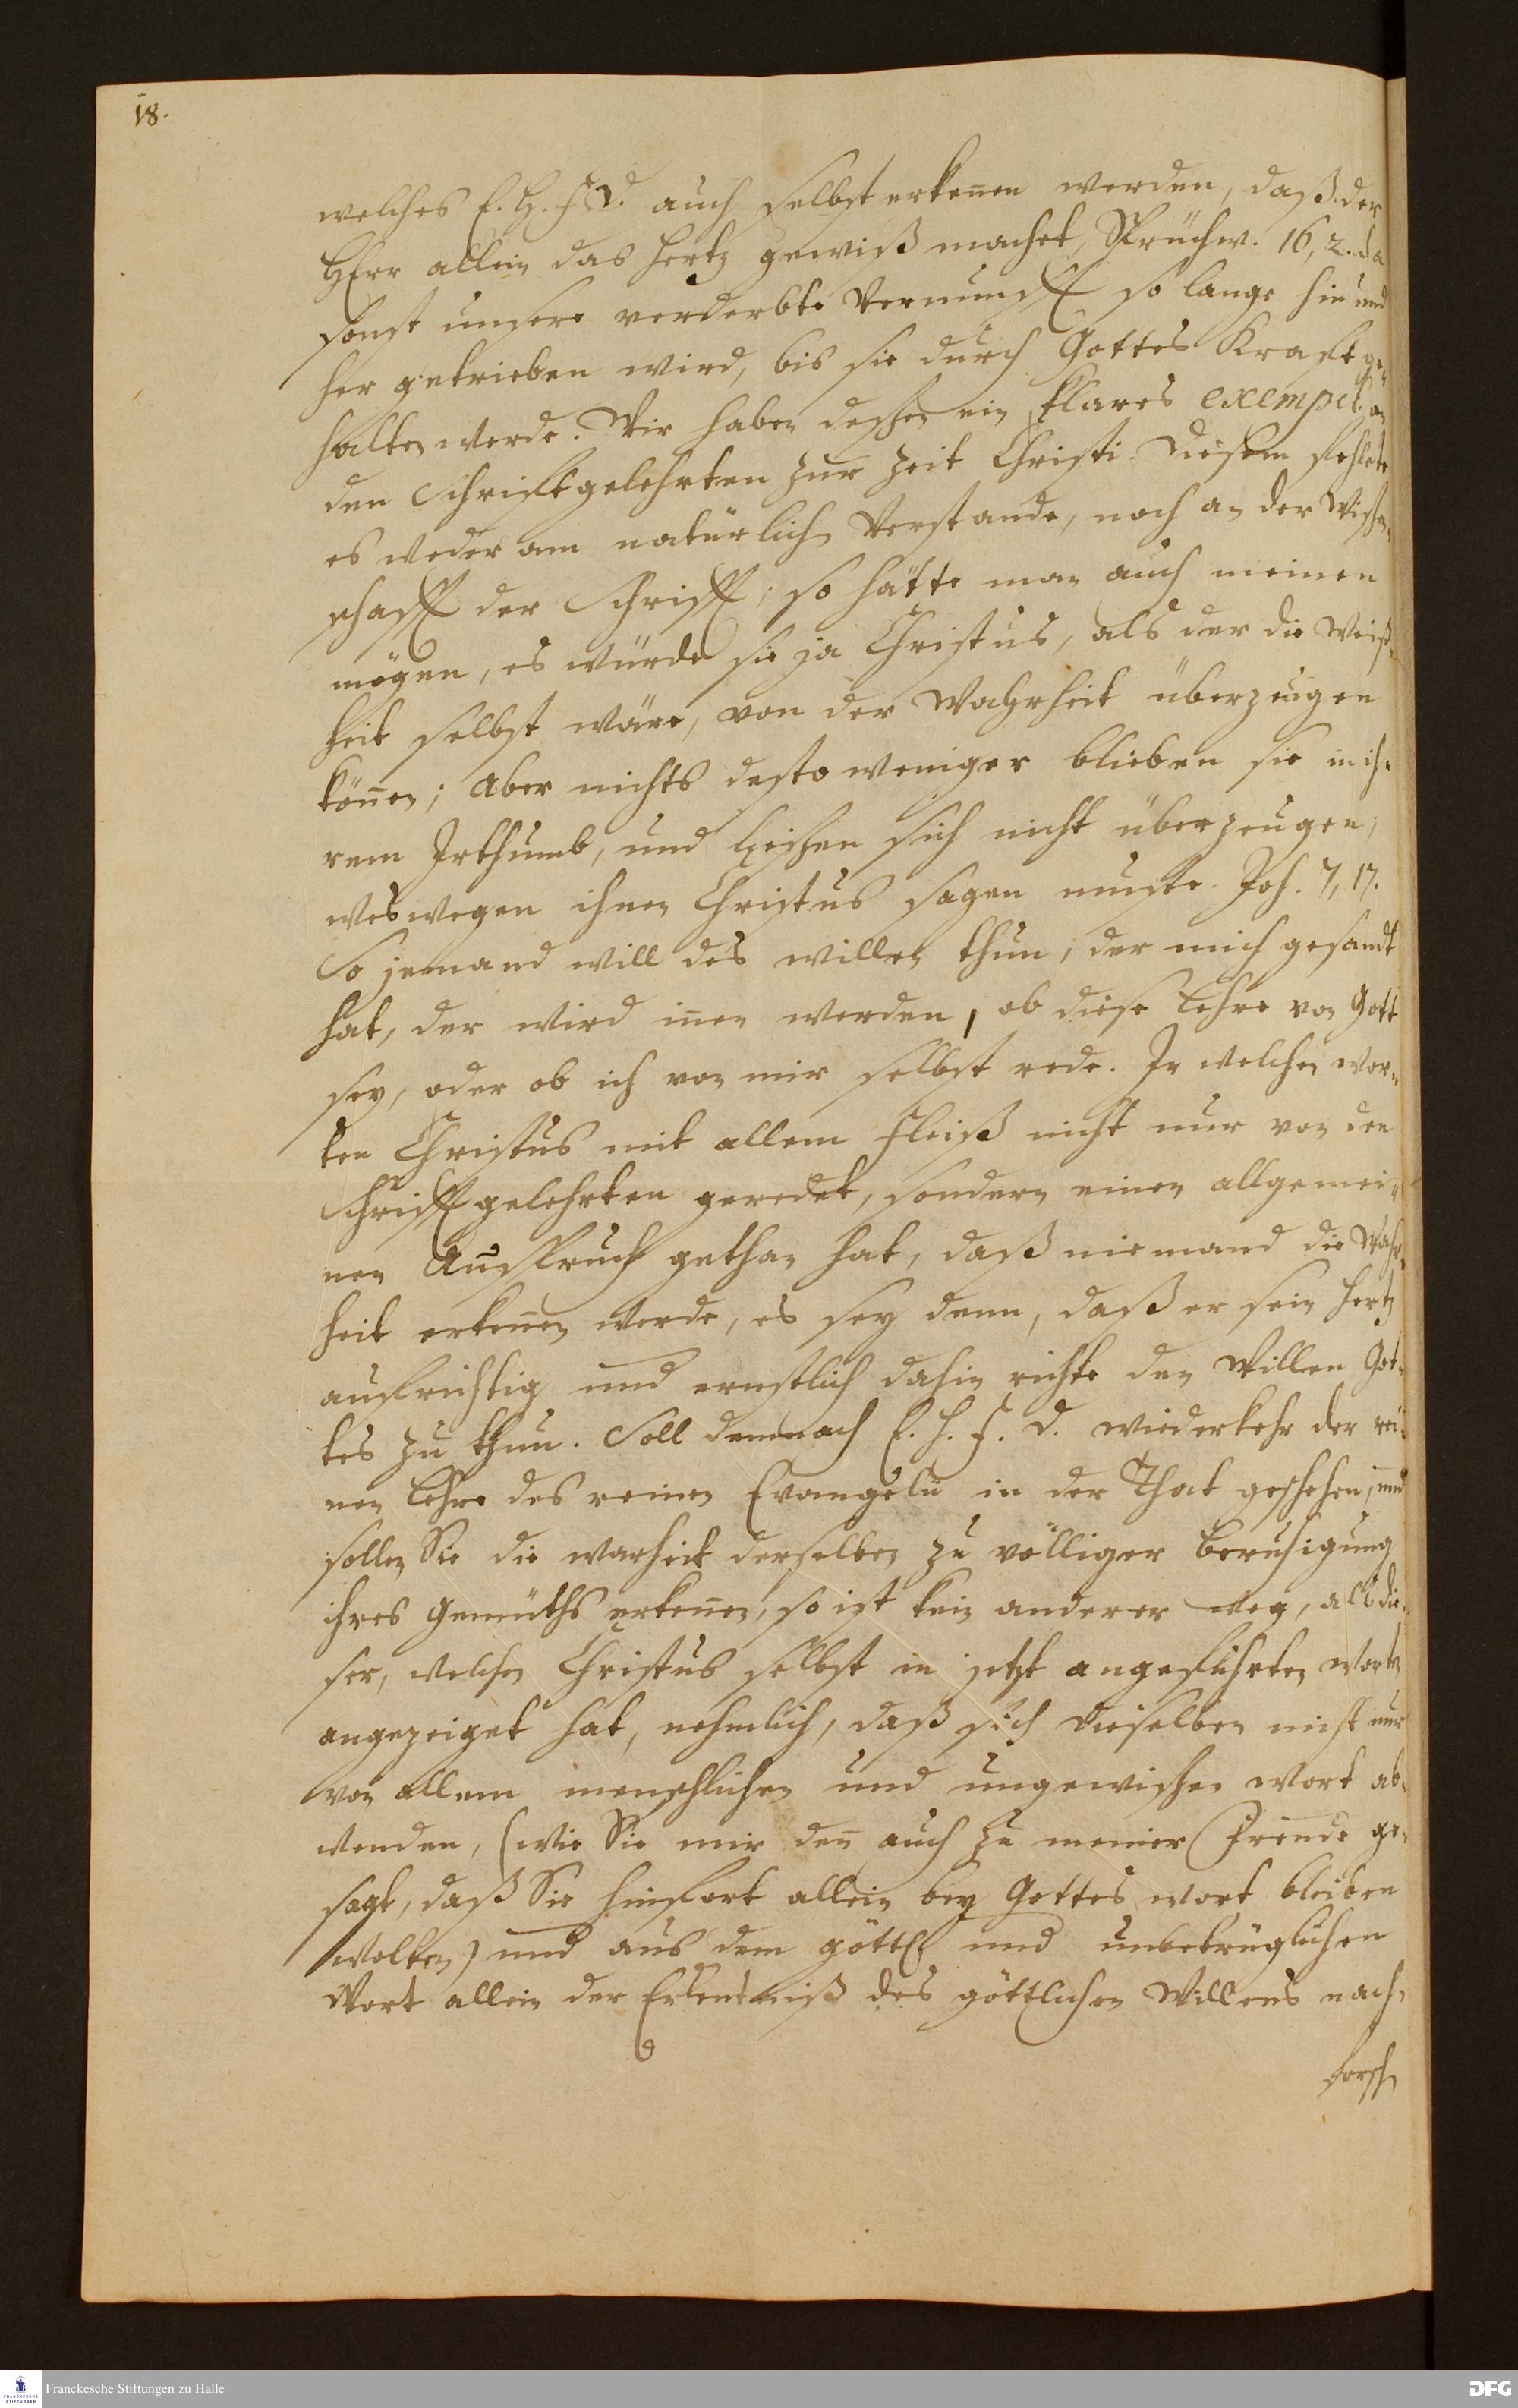 18.
welches E. H. F. D. auch selbst erkennen werden, daß der
HErr allein das Hertz gewiß machet, Sprüchw. 16, 2. da
sonst unsere verderbte Vernunfft so lange hin und
her getrieben wird, bis sie durch Gottes Krafft ge-
halten werde. Wir haben dessen ein klares exempel an
den Schrifftgelehrten zur Zeit Christi. Diesen fehlete
es weder am natürlichen Verstande, noch an der Wissen-
schafft der Schrifft; so hätte man auch meinen
mögen, es würde sie ja Christus, als der die Weiß-
heit selbst wäre, von der Wahrheit überzeugen
können; Aber nichts desto weniger blieben sie in ih-
rem Irthumb, und liessen sich nicht überzeugen;
weswegen ihnen Christus sagen muste. Joh. 7, 17.
So jemand will des willen thun, der mich gesandt
hat, der wird innen werden, ob diese Lehre von Gott
sey, oder ob ich von mir selbst rede. In welchen Wor-
ten Christus mit allem Fleiß nicht nur von den
Schrifftgelehrten geredet, sondern einen allgemei-
nen Außspruch gethan hat, daß niemand die Wahr-
heit erkennen werde, es sey denn, daß er sein Hertz
aufrichtig und ernstlich dahin richte den Willen Got-
tes zu thun. Soll demnach E. H. F. D. wiederkehr der rei-
nen Lehre des reinen Evangelii in der That geschehen, und
sollen Sie die warheit derselben zu völliger Beruhigung
ihres Gemüths erkennen, so ist kein anderer weg, als die-
ser, welchen Christus selbst in jetzt angeführten Worten
angezeiget hat, nehmlich, daß sich dieselben nicht nur
von allem menschlichen und ungewissen Wort ab-
wenden, (wie Sie mir denn auch zu meiner Freude ge-
sagt, daß Sie hinfort allein bey Gottes wort bleiben
wolten) und aus dem göttl. und unbetrüglichen
Wort allein der Erkentniß des göttlichen Willens nach-
forschen
Franckesche Stiftungen zu Halle
FRANCKESCHE STIFTUNGEN
DFG